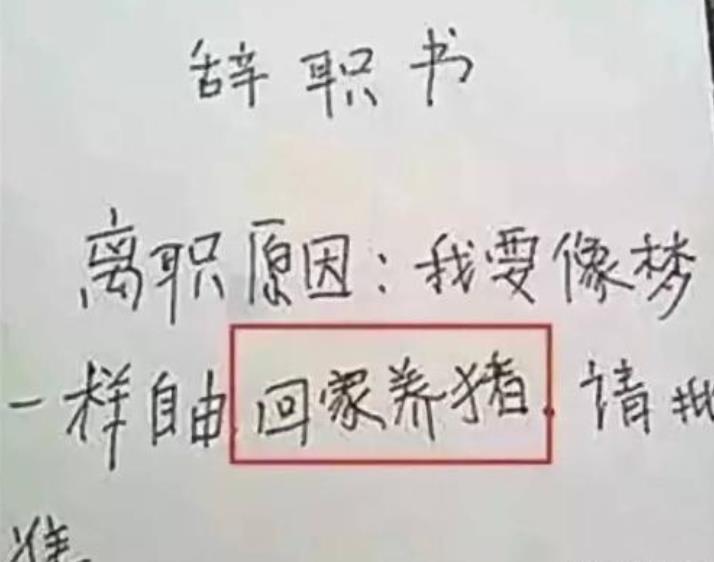 辞职书
离职原因：我要像梦
一样自由,回家养猪.请批
准